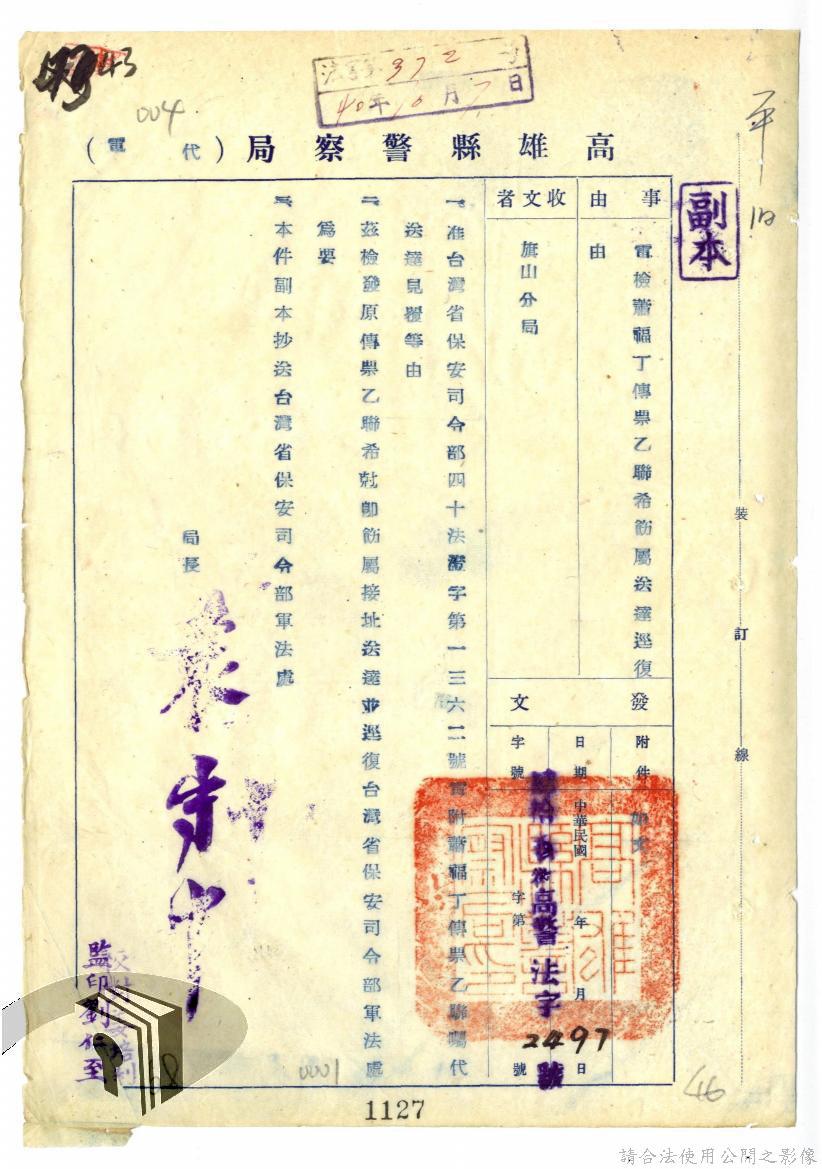 43
法字第 372 号
40年10月7日
004
高雄縣警察局(代電)
副本
事由
電檢蕭福丁傳票乙聯希飭屬送達逕復由
收文者
旗山分局
發文
附件
如文
日期
中華民國 年 月 日
字號
高警法字
字第 2497 號
一、准台灣省保安司令部四十法澄字第一三六二號電附蕭福丁傳票乙聯囑代
送達見覆等由
二、茲檢發原傳票乙聯希尅即飭屬按址送達並逕復台灣省保安司令部軍法處
為要
三、本件副本抄送台灣省保安司令部軍法處
局長
監印劉
校對
0001
1127
46
裝訂線
請合法使用公開之影像